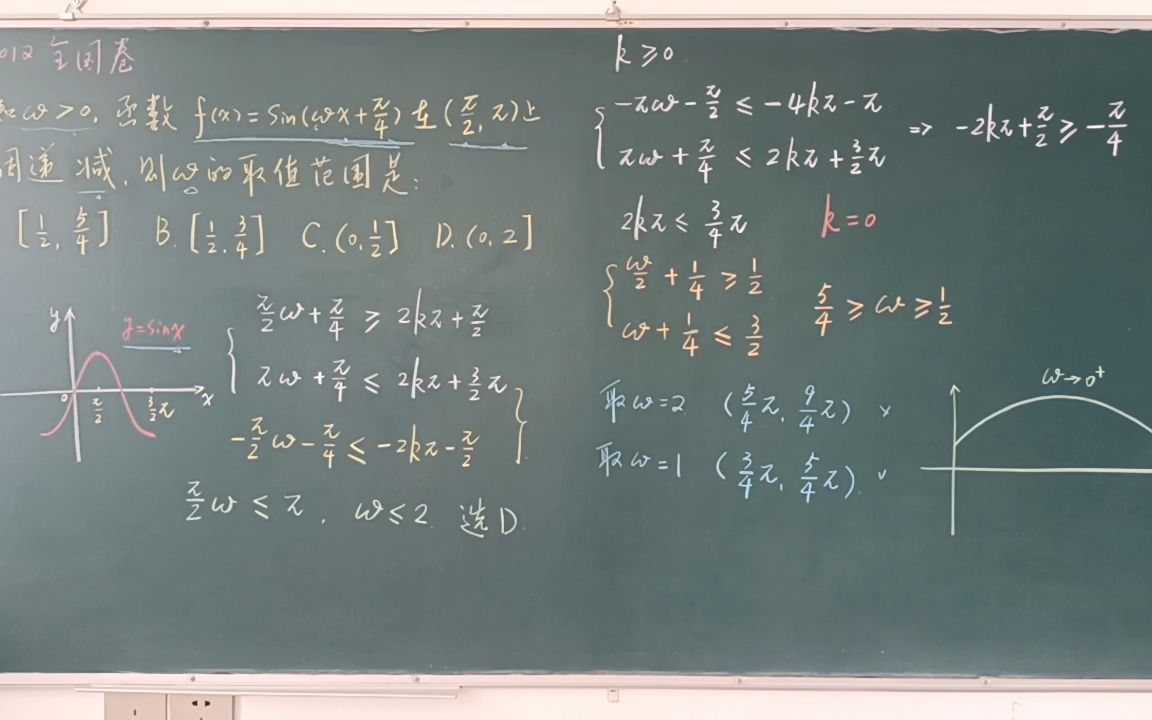 012 全国卷
知ω>0, 函数 f(x)=Sin(ωx+π/4)在(π/2, π)上
调递减, 则ω的取值范围是:
[1/2, 5/4] B.[1/2, 3/4] C.(0, 1/2] D.(0, 2]
y
y=sinx
0 π/2 3/2π x
π/2ω+π/4 ≥ 2kπ+π/2
πω+π/4 ≤ 2kπ+3/2π
-π/2ω-π/4 ≤ -2kπ-π/2
π/2ω ≤ π, ω≤2 选D.
k≥0
-πω-π/2 ≤ -4kπ-π
πω+π/4 ≤ 2kπ+3/2π
=> -2kπ+π/2 ≥ -π/4
2kπ ≤ 3/4π k=0
ω/2+1/4 ≥ 1/2
ω+1/4 ≤ 3/2
5/4 ≥ ω ≥ 1/2
取ω=2 (5/4π, 9/4π) ×
取ω=1 (3/4π, 5/4π). ∨
ω→0⁺